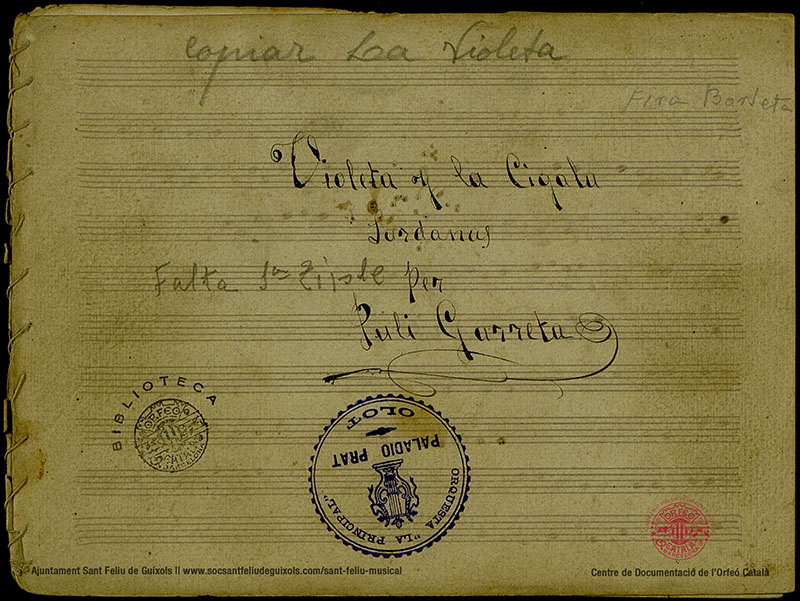 copiar La Violeta
Fira Barleta
Violeta y la Cigala
Sardanas
Falta
per
Juli Garreta
BIBLIOTECA
ORFEÓ CATALÀ
OLOT
PALADIO PRAT
ORQUESTA "LA PRINCIPAL"
ORFEÓ CATALÀ
Ajuntament Sant Feliu de Guíxols II www.socsantfeliudeguixols.com/sant-feliu-musical
Centre de Documentació de l'Orfeó Català